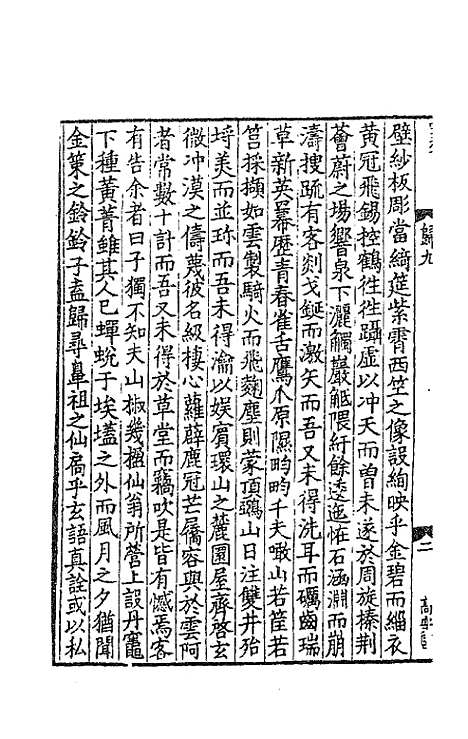 壁紗板彫當綺筵紫霄西竺之像設絢映乎金碧而緇衣
黃冠飛錫控鶴徃徃躡虛以冲天而曽未遂於周旋榛荆
薈蔚之塲響泉下灑觸巖觝隈紆餘逶迤在石涵淵而崩
濤搜䟽有客剡戈鋋而激矢而吾又未得洗耳而礪齒瑞
草新英冪歷青春雀舌鷹爪原隰畇畇千夫噉山若筐若
筥採擷如雲製騎火而飛麴塵則蒙頂鴻山日注雙井殆
埒美而並珎而吾未得瀹以娱賔環山之麓園屋齊啓玄
微冲漠之儔蔑彼名級棲心蘿薜鹿冠芒屩容與於雲阿
者常數十計而吾又未得於草堂而竊吹是皆有憾焉客
有告余者曰子獨不知夫山椒幾楹仙翁所營上設丹竈
下種黃菁雖其人已蟬蛻于埃壒之外而風月之夕猶聞
金策之鈴鈴子盍歸尋鼻祖之仙扃乎玄語真詮或以私
歸九
二